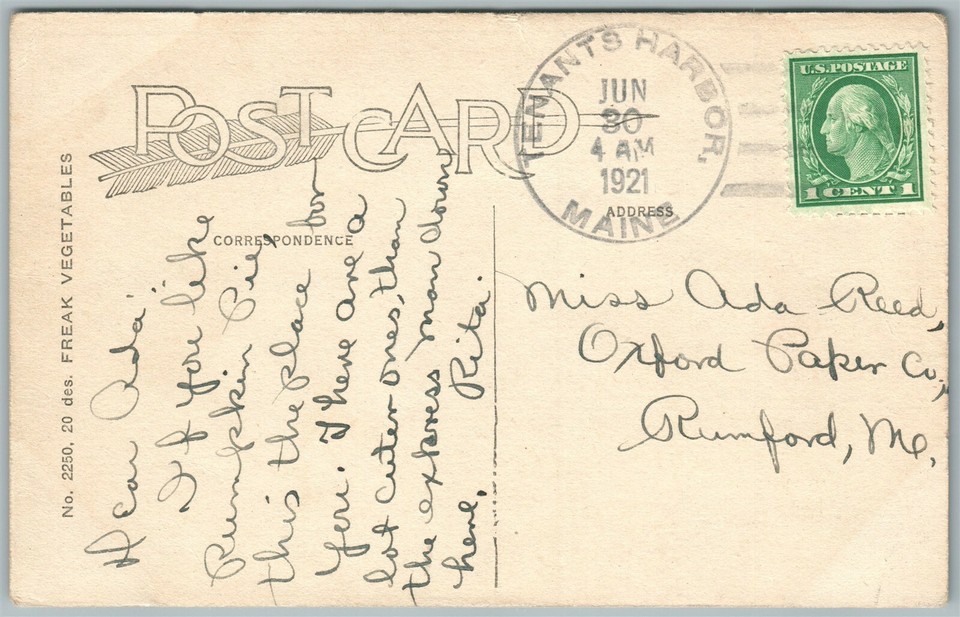 POST CARD
TENANTS HARBOR,
JUN
30
4 AM
1921
MAINE
U.S. POSTAGE
1 CENT 1
No. 2250, 20 des. FREAK VEGETABLES
CORRESPONDENCE
ADDRESS
Dear Ada:
If you like
Pumpkin Pie,
this the place for
you. There are a
lot cuter ones, than
the express man down
here. Rita.
Miss Ada Reed,
Oxford Paper Co.,
Rumford, Me.